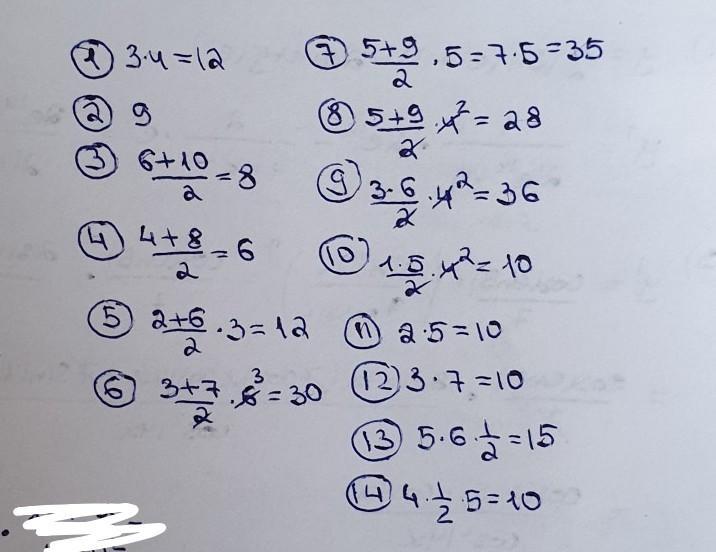 ① 3·4=12
② 9
③ (6+10)/2=8
④ (4+8)/2=6
⑤ (2+6)/2·3=12
⑥ (3+7)/2·6³=30
⑦ (5+9)/2·5=7·5=35
⑧ (5+9)/2·4²=28
⑨ (3·6)/2·4²=36
⑩ (1·5)/2·4²=10
⑪ 2·5=10
⑫ 3·7=10
⑬ 5·6·1/2=15
⑭ 4·1/2·5=10